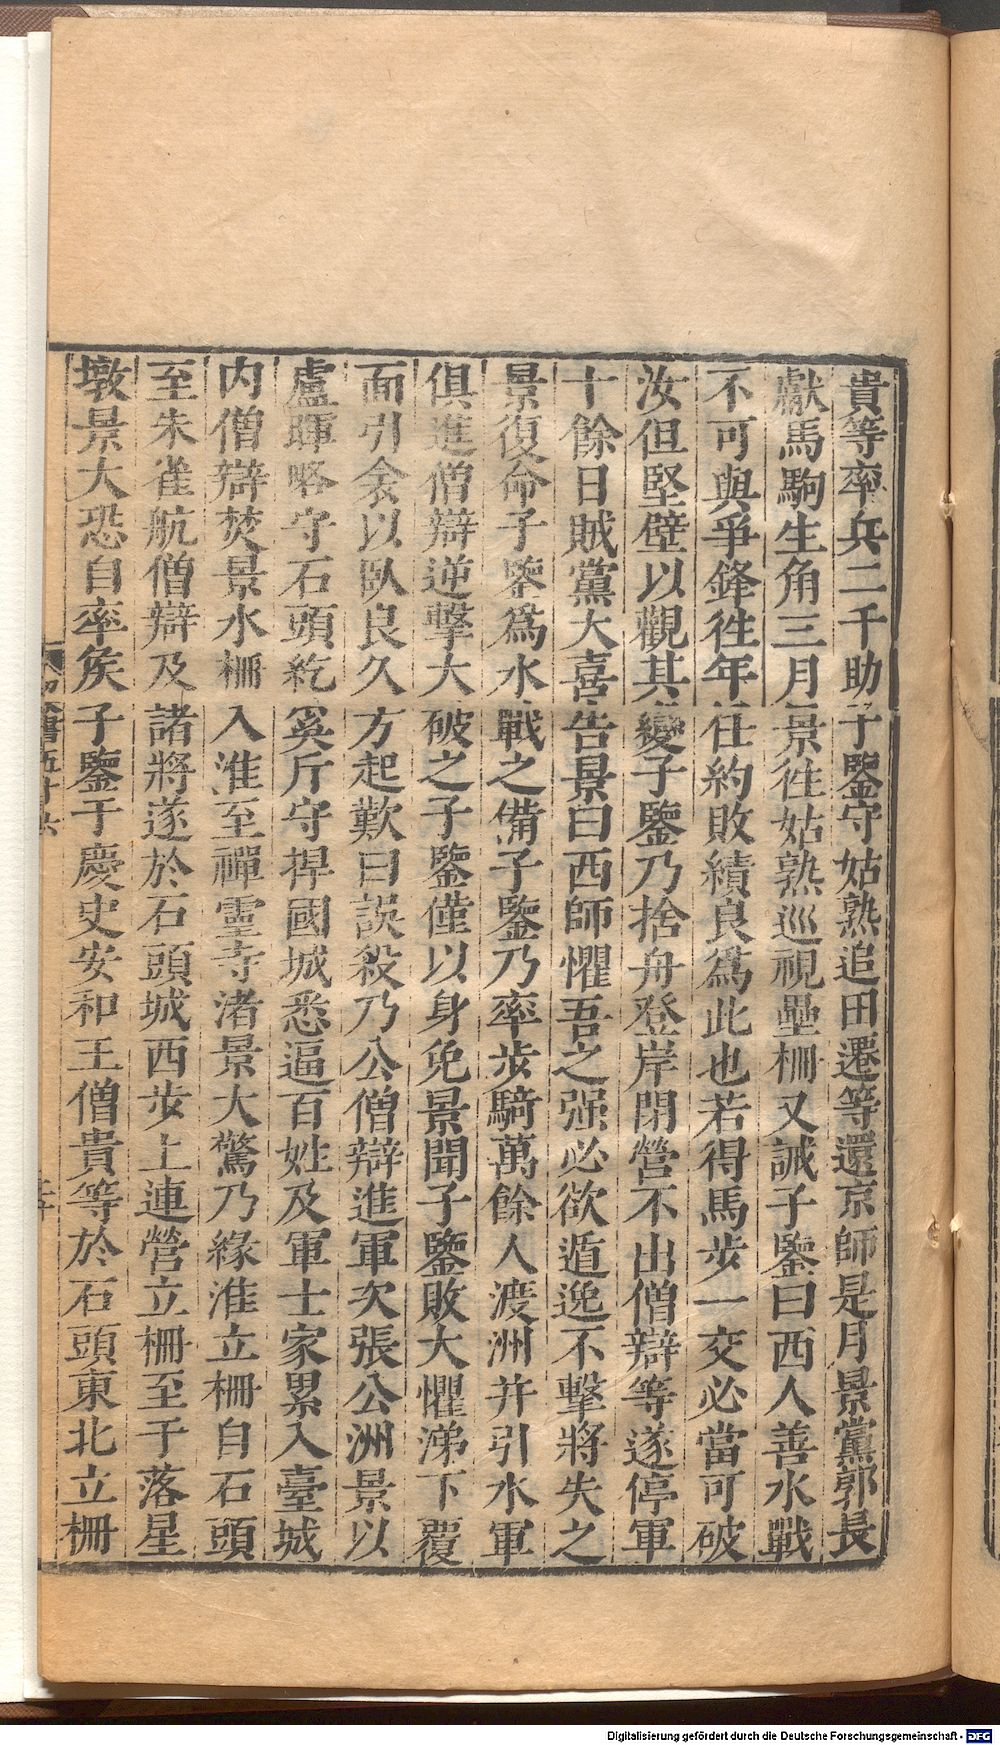 貴等率兵二千助子鑒守姑熟追田遷等還京師是月景黨郭長
獻馬駒生角三月景徃姑熟巡視壘柵又誡子鑒曰西人善水戰
不可與爭鋒徃年任約敗績良爲此也若得馬步一交必當可破
汝但堅壁以觀其變子鑒乃捨舟登岸閉營不出僧辯等遂停軍
十餘日賊黨大喜告景曰西師懼吾之强必欲遁逸不擊將失之
景復命子鑒爲水戰之備子鑒乃率步騎萬餘人渡洲并引水軍
俱進僧辯逆擊大破之子鑒僅以身免景聞子鑒敗大懼涕下覆
面引衾以臥良久方起歎曰誤殺乃公僧辯進軍次張公洲景以
盧暉略守石頭紇奚斤守捍國城悉逼百姓及軍士家累入臺城
内僧辯焚景水柵入淮至禪靈寺渚景大驚乃緣淮立柵自石頭
至朱雀航僧辯及諸將遂於石頭城西步上連營立柵至于落星
墩景大恐自率侯子鑒于慶史安和王僧貴等於石頭東北立柵
書五十六
Digitalisierung gefördert durch die Deutsche Forschungsgemeinschaft - DFG